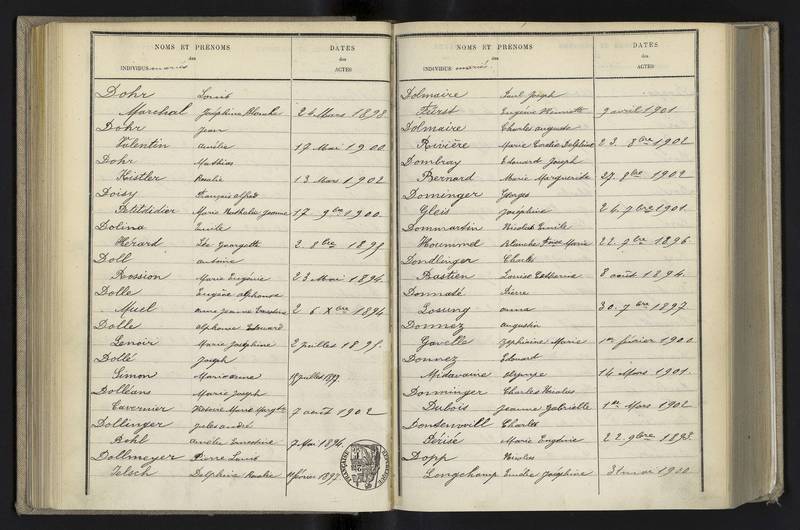 NOMS ET PRÉNOMS
des
INDIVIDUS mariés
DATES
des
ACTES
Dohr Louis
Marchal Joséphine Blanche 24 Mars 1898
Dohr Jean
Valentin Amélie 17 Mai 1900
Dohr Mathias
Kistler Rosalie 13 Mars 1902
Doisy François Alfred
Petitdidier Marie Jeanne 17 9bre 1900
Dolina Emile
Hérard Georgette 2 8bre
Doll Antoine
Rossion Marie Eugénie 23 Mai 1894
Dolle Eugène Alphonse
Muel Anne Jeanne 26 Xbre 1894
Dolle Alphonse Edouard
Lenoir Marie Joséphine 2 juillet
Dollé Joseph
Simon Marie Anne juillet 1897
Dolléans Marie Joseph
Cavernier Marie 7 août 1902
Dollinger Jules André
Bohl Amélie Ernestine 7 Mai 1896
Dollmeyer Pierre Louis
Jelsch Delphine Rosalie février 1897
NOMS ET PRÉNOMS
des
INDIVIDUS mariés
DATES
des
ACTES
Dolmaire Paul Joseph
Fürst Eugénie Henriette 9 avril 1901
Dolmaire Charles Auguste
Rivière Marie Delphine 23 8bre 1902
Dombray Edouard Joseph
Bernard Marie Marguerite 27 8bre 1902
Dominger Georges
Gleis Joséphine 26 7bre 1901
Dommartin Nicolas Emile
Hoummel Blanche Marie 22 7bre 1896
Dondlinger Charles
Bastien Louise Catherine 8 août 1894
Donnaté Pierre
Losung Anna 30 7bre 1897
Donnez Augustin
Gavelle Zéphirine Marie 1er février 1900
Donnez Edouard
Midavaine Olympe 14 Mars 1901
Donninger Charles Nicolas
Dubois Jeanne Gabrielle 1er Mars 1902
Charles
Marie Eugénie 22 9bre 1893
Dopp Nicolas
Longchamp Emélie Joséphine 31 mai 1900